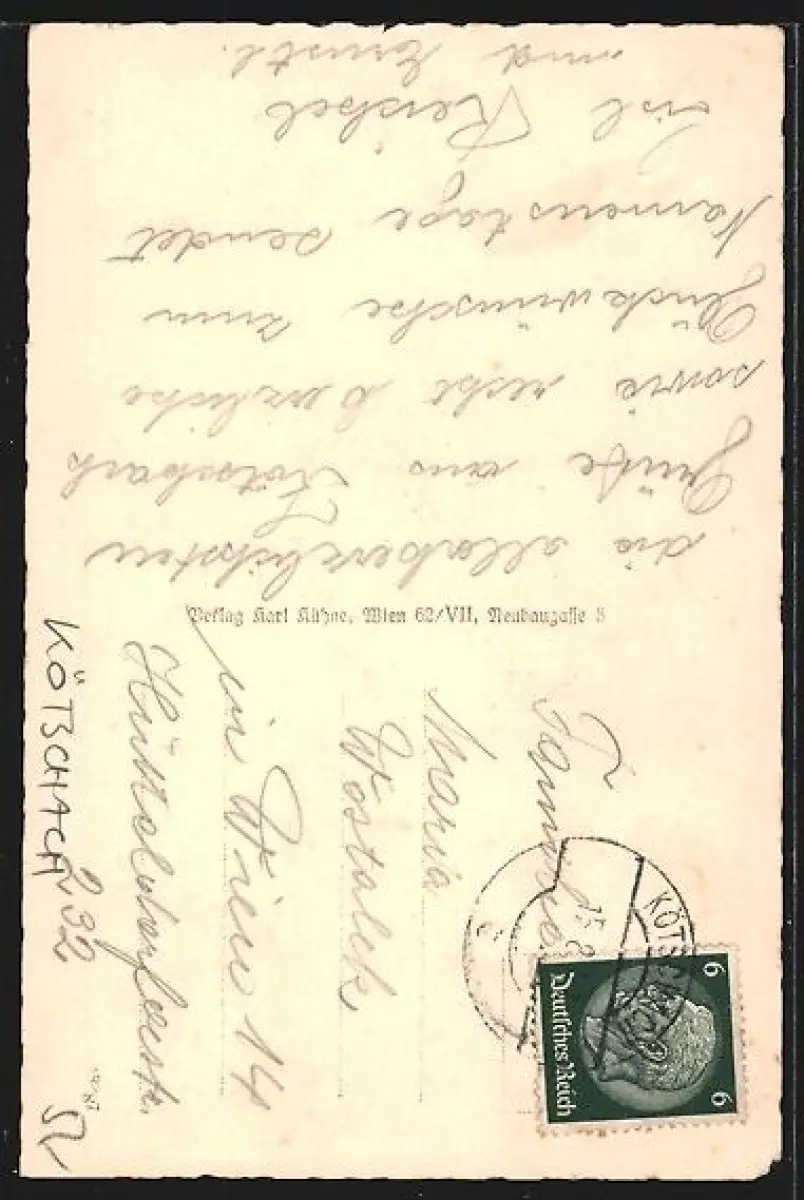 die allerherzlichsten
Grüße aus Kötschach
sowie recht herzliche
Glückwünsche zum
Namenstage sendet
Reisel
und Ernstl.
Verlag Karl Kühne, Wien 62/VII, Neubaugasse 8
Familie
Maria
Wostalek
in Wien 14
Hütteldorferstr.
232
KÖTSCHACH
6
6
Deutsches Reich
KÖTSCHACH
15